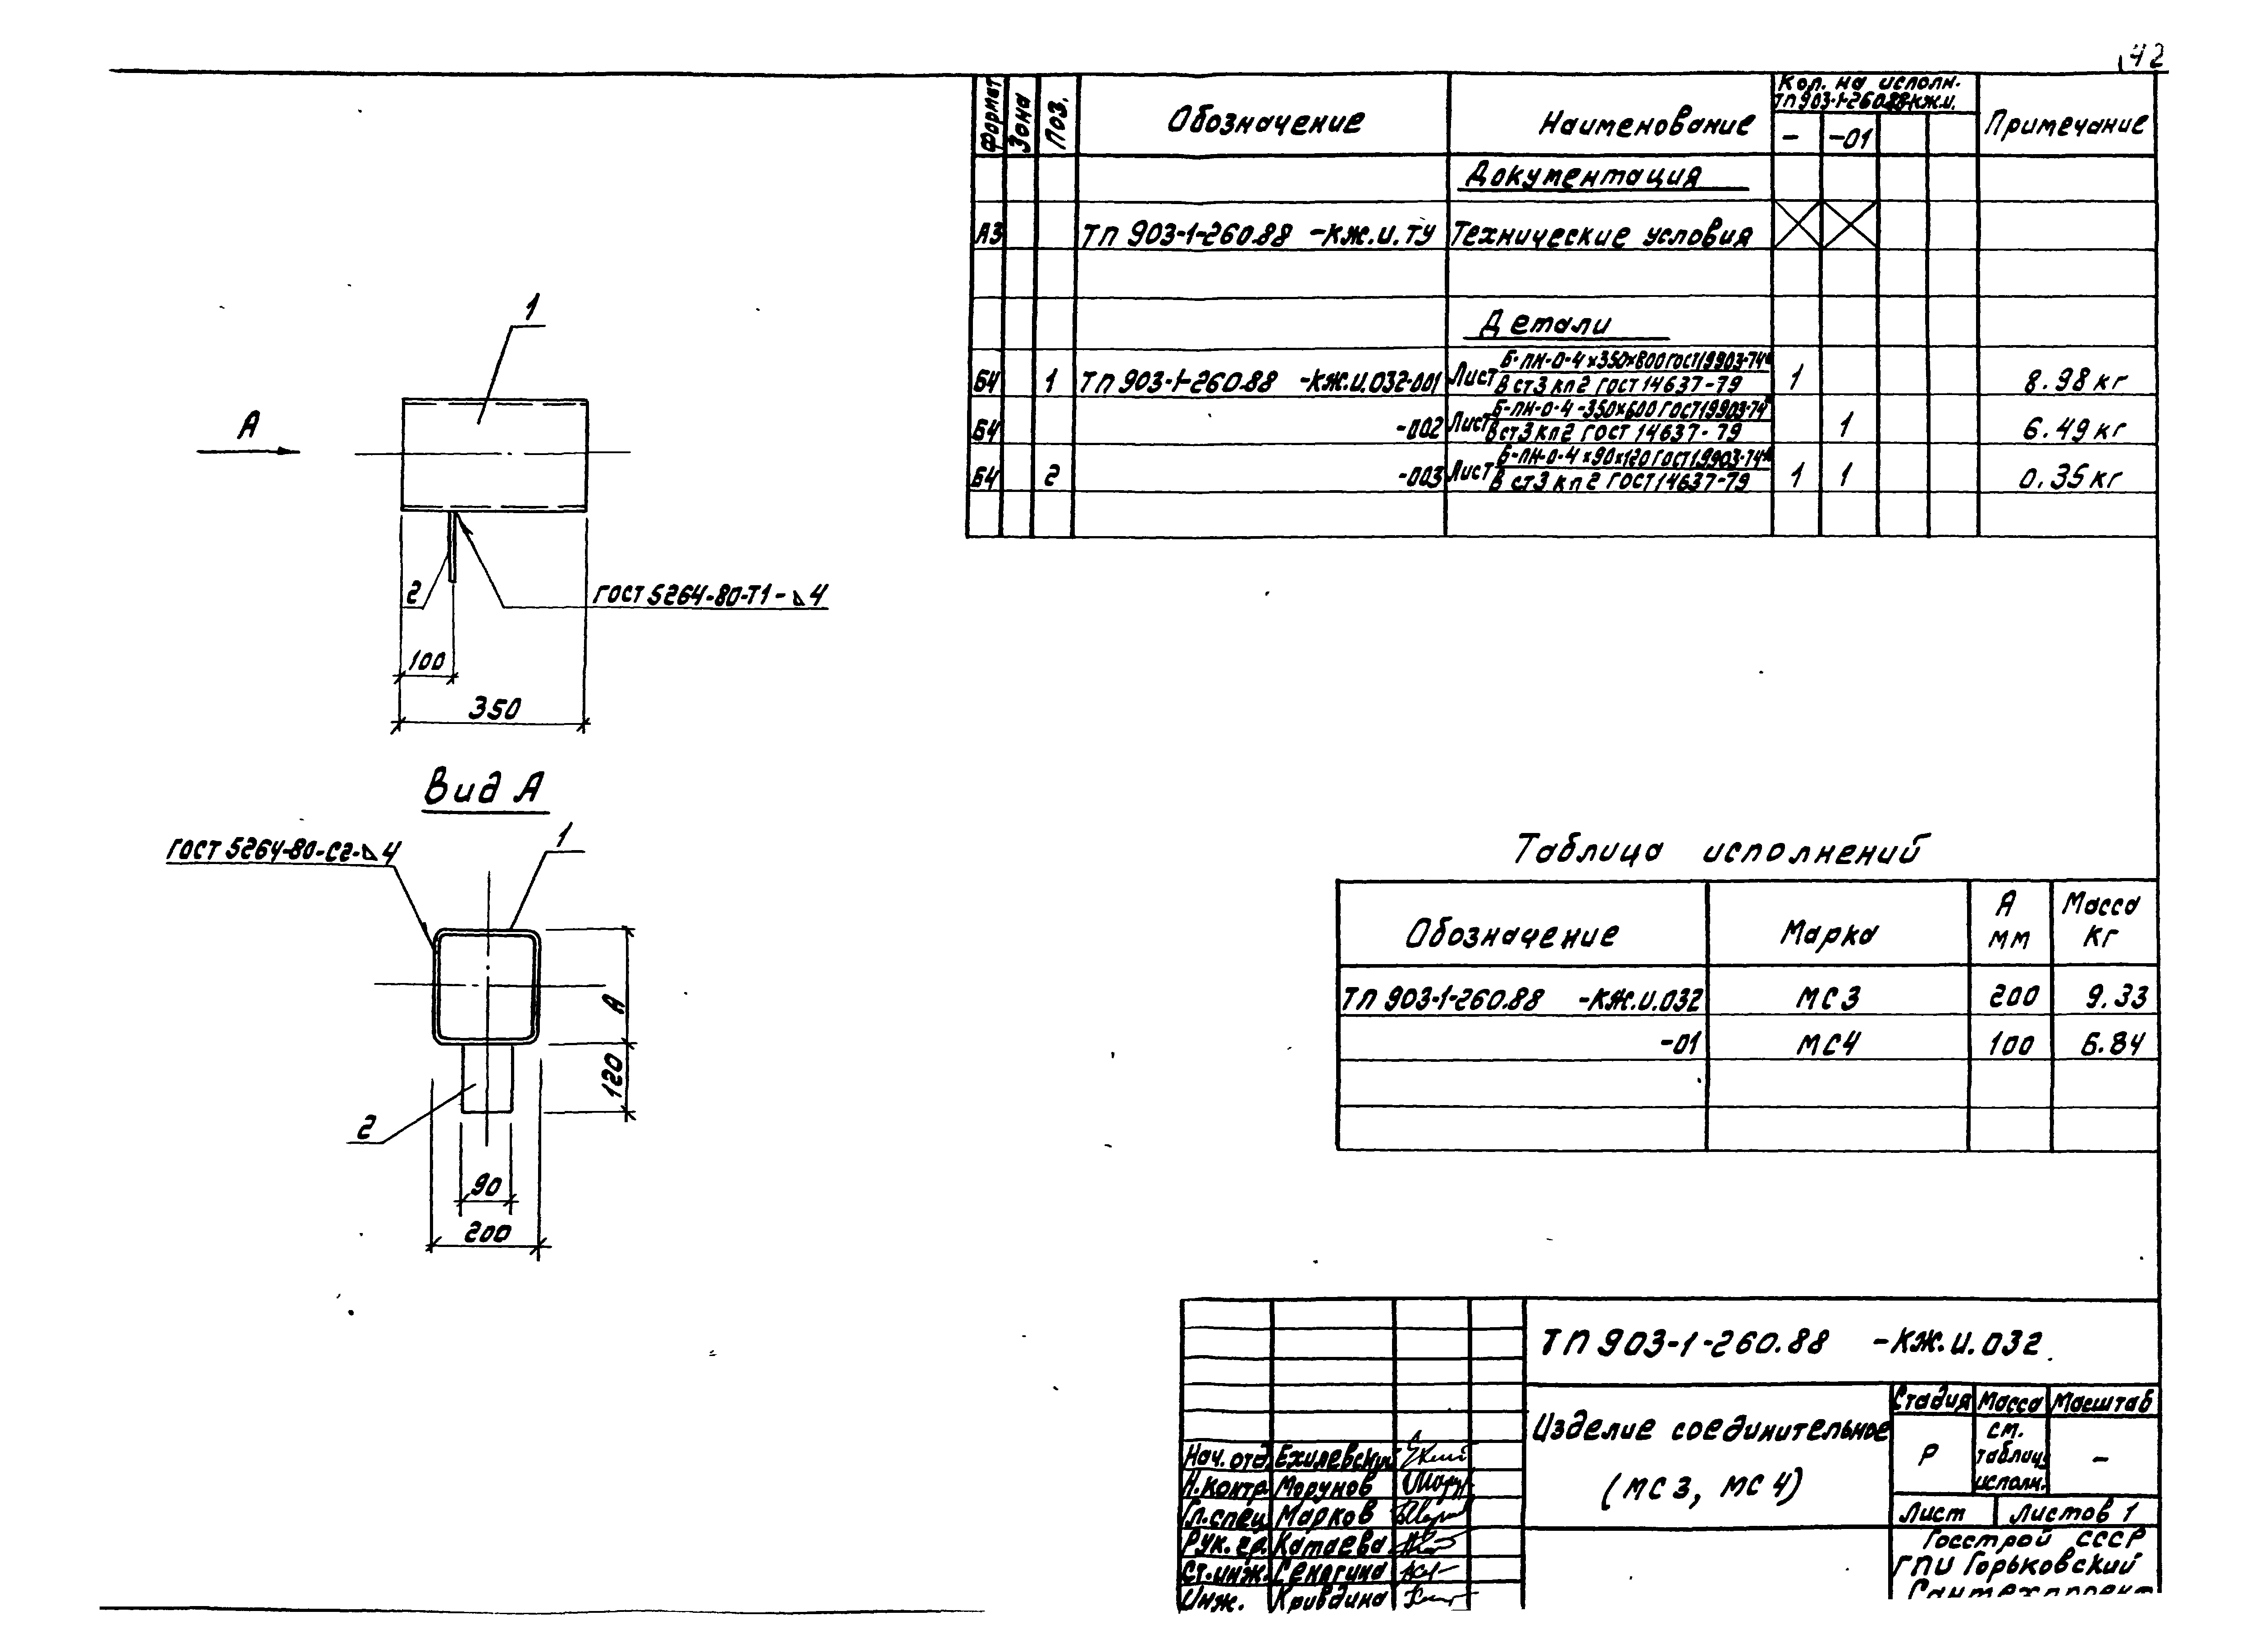 42
Формат
Зона
Поз.
Обозначение
Наименование
Кол. на исполн.
ТП903-1-260.88-КЖ.И.
-
-01
Примечание
Документация
А3 ТП 903-1-260.88 -КЖ.И.ТУ Технические условия
Детали
Б4 1 ТП 903-1-260.88 -КЖ.И.032-001 Лист Б-ПН-О-4×350×800 ГОСТ19903-74*
В ст3 кп2 ГОСТ 14637-79 1 8.98 кг
Б4 -002 Лист Б-ПН-О-4-350×600 ГОСТ19903-74*
В ст3 кп2 ГОСТ 14637-79 1 6.49 кг
Б4 2 -003 Лист Б-ПН-О-4×90×120 ГОСТ19903-74*
В ст3 кп2 ГОСТ 14637-79 1 1 0.35 кг
1
А
2
ГОСТ 5264-80-Т1-⊿4
100
350
Вид А
ГОСТ 5264-80-С2-⊿4
1
А
120
2
90
200
Таблица исполнений
Обозначение Марка А мм Масса кг
ТП 903-1-260.88 -КЖ.И.032 МС3 200 9.33
-01 МС4 100 6.84
ТП 903-1-260.88 -КЖ.И.032
Изделие соединительное
(МС3, МС4)
Стадия Масса Масштаб
Р
см.
таблиц.
исполн.
-
Лист Листов 1
Госстрой СССР
ГПИ Горьковский
Сантехпроект
Нач. отд. Ехилевский
Н.контр. Морунов
Гл.спец. Марков
Рук. гр. Катаева
Ст.инж. Сенягина
Инж. Кривдина